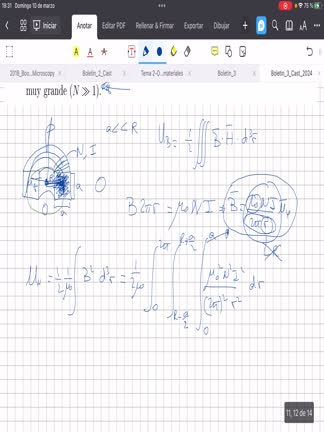 18:31 Domingo 10 de marzo 75 %
Dictado Inicio Anotar Editar PDF Rellenar & Firmar Exportar Dibujar
2018_Boo...Microscopy Boletin_2_Cast Tema 2-D...materiales Boletin_3 Boletin_3_Cast_2024
muy grande (N ≫ 1).
a << R U_B = 1/2 ∭ B · H · d³r
N, I
a
a
B 2πr = μ₀ N I ⇒ B = μ₀ N I / 2πr u_φ
U_B = 1/2 1/μ₀ ∫ B² d³r = 1/2μ₀ ∫₀^2π ∫_{R-a/2}^{R+a/2} ∫₀^a μ₀² N² I² / (2π)² r² dr
11, 12 de 14